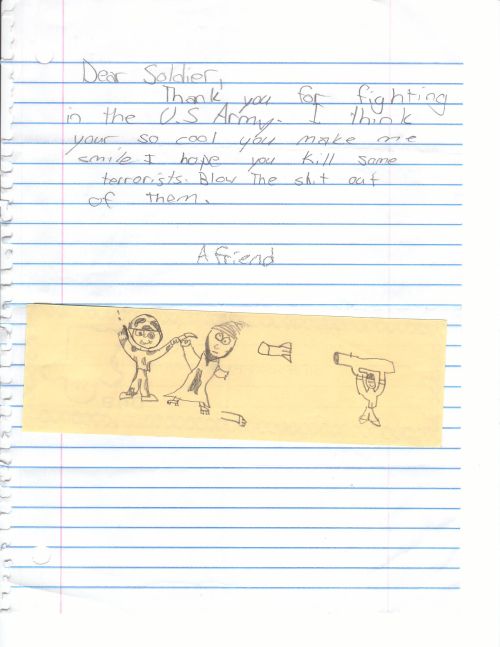 Dear Soldier,
Thank you for fighting
in the U.S Army. I think
your so cool you make me
smile I hope you kill some
terrorists. Blow The shit out
of them.
A friend